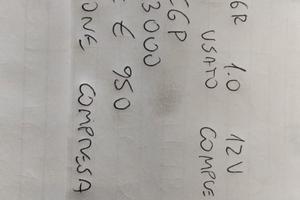 GR 1.0 12V
USATO COMPLE
EGP
3000
E € 950
ONE COMPRESA